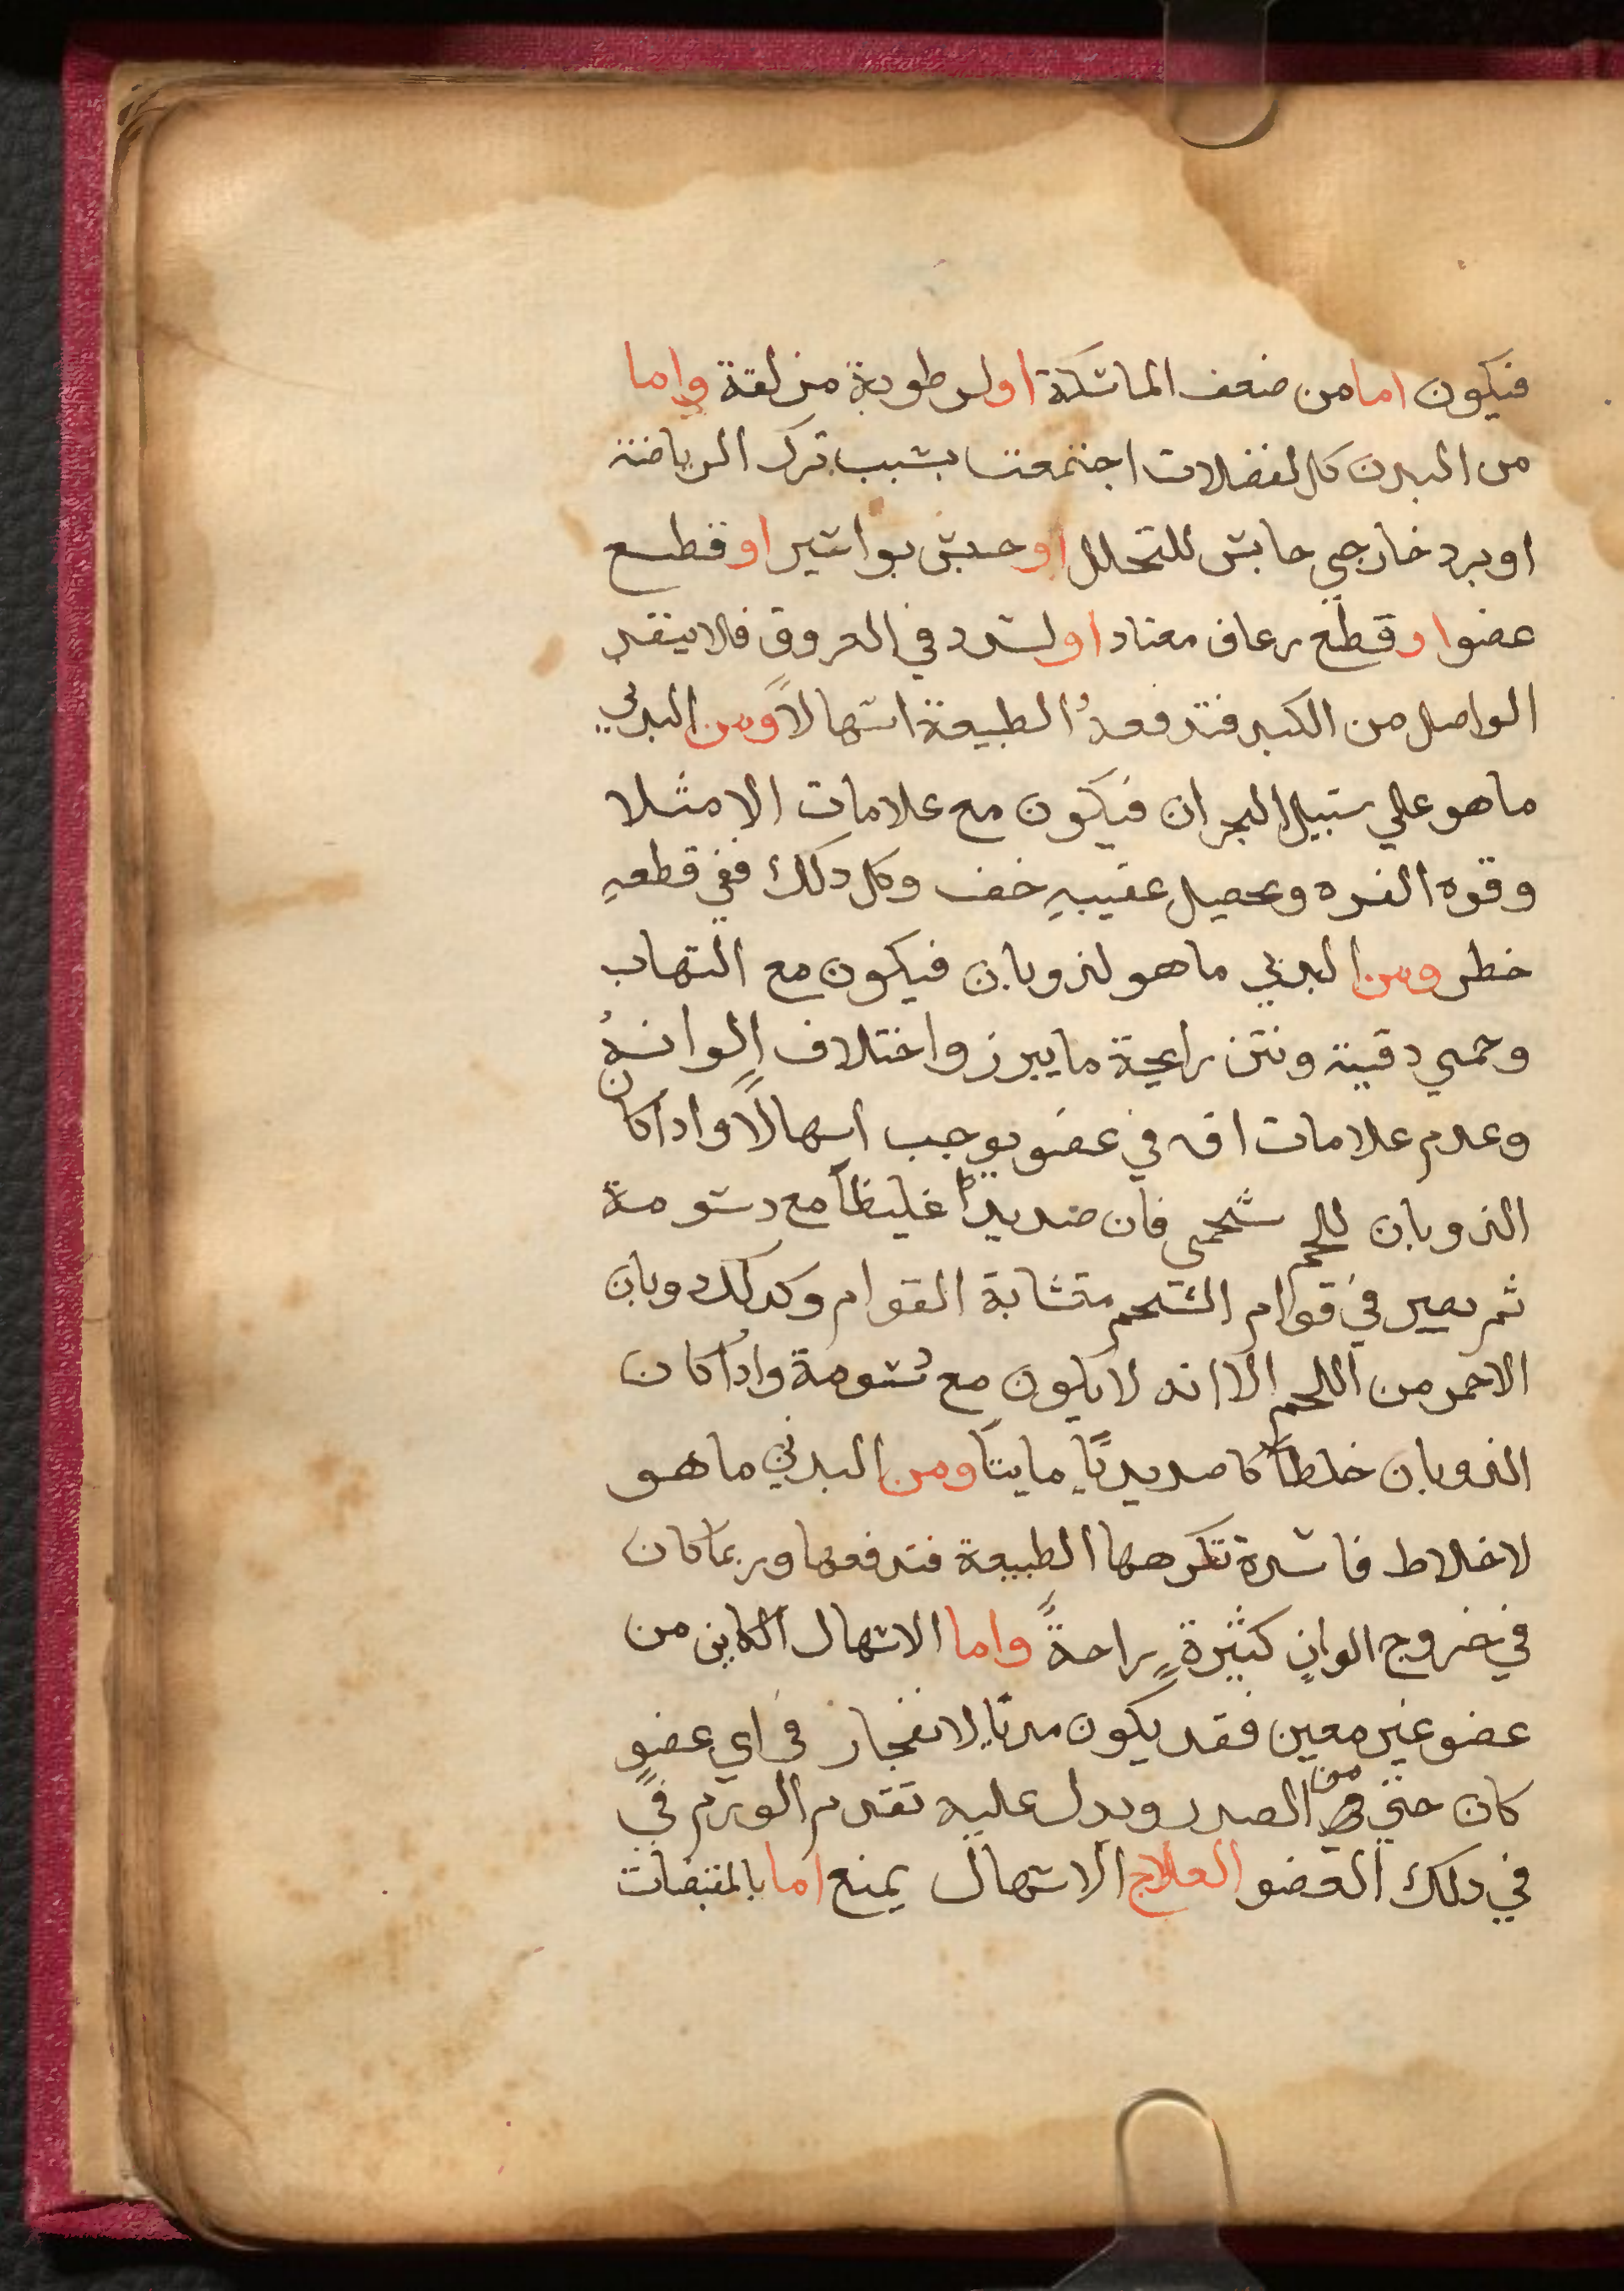 فيكون اما من ضعف الماسكة او لرطوبة مزلقة واما
من البدن كله لفضلات اجتمعت بسبب ترك الرياضة
او برد خارجي حابس للتحلل او حبس بواسير او قطع
عضو او قطع رعاف معتاد او لسدد في العروق فلا ينفد
الواصل من الكبد فتدفعهُ الطبيعة اسهالاً ومن البدني
ما هو علي سبيل البحران فيكون مع علامات الامتلا
وقوه القوه ويحصل عقيبهِ خف وكل دلك ففي قطعهِ
خطر ومن البدني ما هو لذوبان فيكون مع التهاب
وحمي دقية ونتن رايحة ما يبرز واختلاف الوانهُ
وعدم علامات افه في عضو يوجب اسهالاً وادا كان
الذوبان للحم شحمي فان صديداً غليظاً مع دسومة
ثم يصير في قوام الشحم متشابة القوام وكدلك دوبان
الاحمر من اللحم الا انه لا يكون مع دسومة وادا كان
الذوبان خلطاً كا صديديًا ماييًا ومن البدني ما هو
لاخلاط فاسدة تكرهها الطبيعة فتدفعها وربما كان
في خروج الوانٍ كثيرةٍ راحةً واما الاسهال الكاين من
عضو غير معين فقد يكون مديًا لانفجار في اي عضوٍ
كان حتي من الصدر ويدل عليه تقدم الورم في
في دلك العضو العلاج الاسهال يمنع اما بالمقبضات